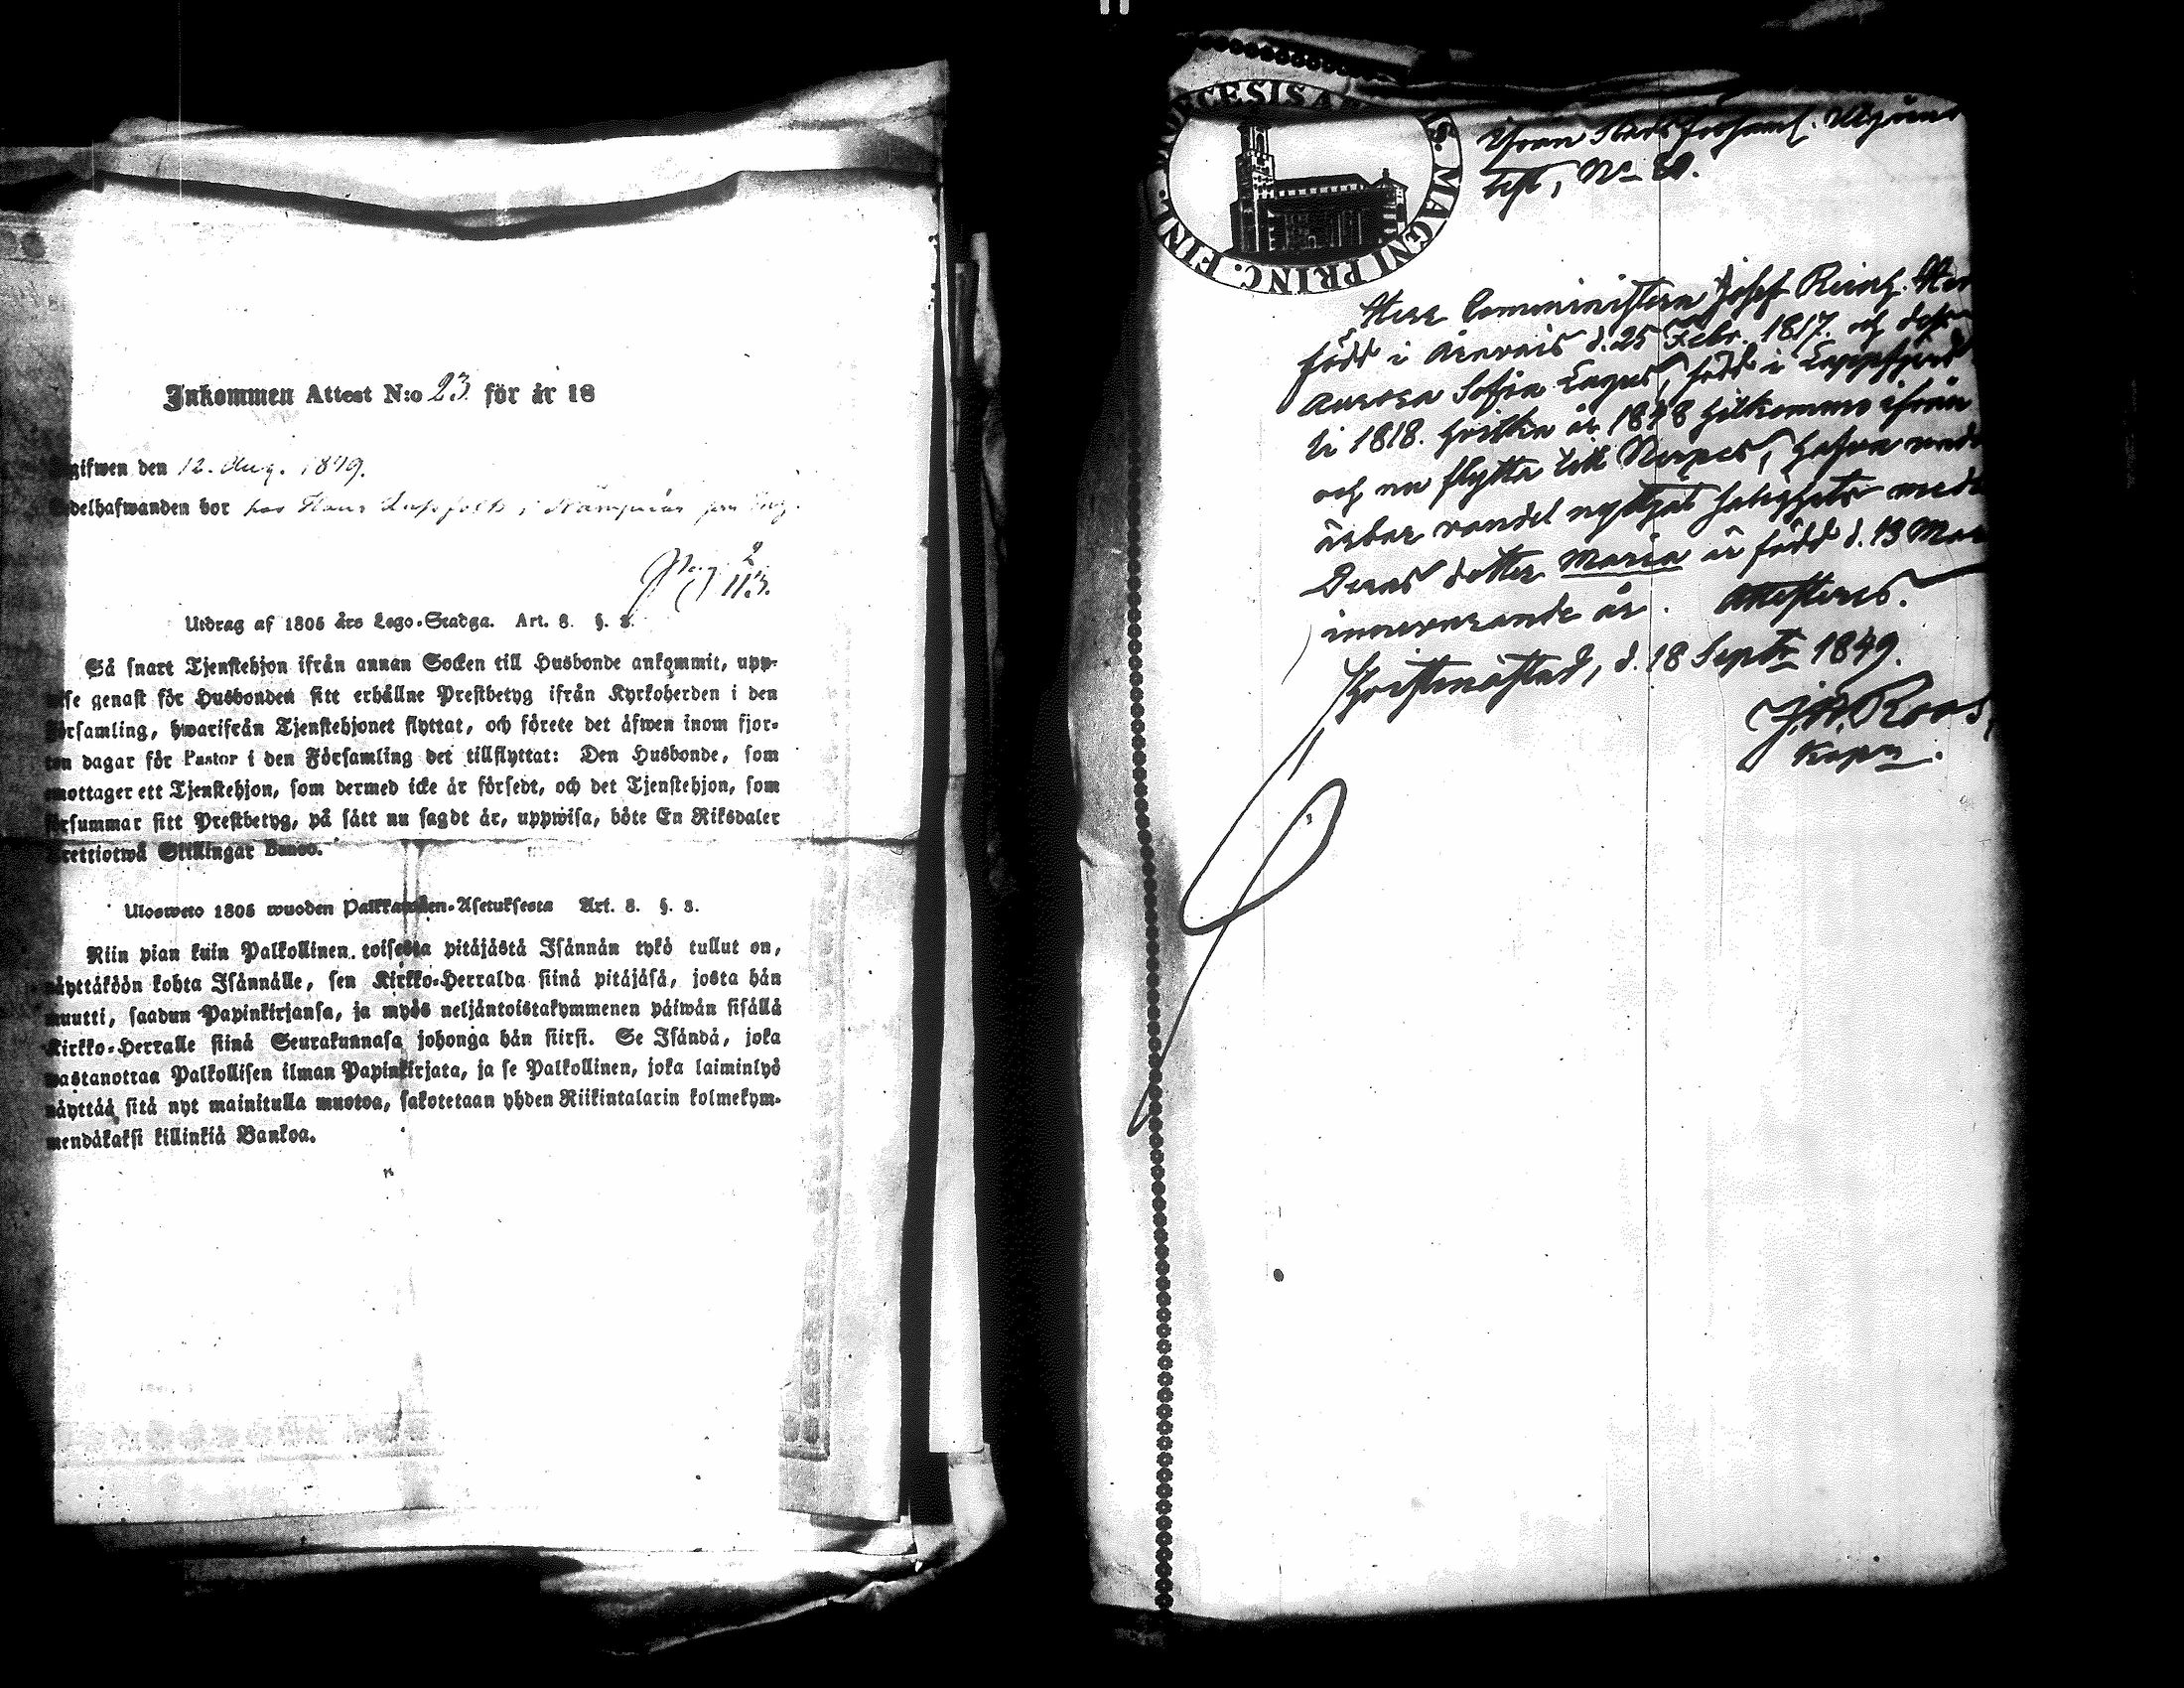 Inkommen Attest N:o 23 för år 18
gifwen den 12. Aug. 1849.
delhafwanden bor hos
Pag. 2
113.
Utdrag af 1805 års Lego-Stadga. Art. 8. §. 3.
Så snart Tjenstehjon ifrån annan Socken till Husbonde ankommit, upp-
se genast för Husbonden sitt erhållne Prestbetyg ifrån Kyrkoherden i den
örsamling, hwarifrån Tjenstehjonet flyttat, och förete det äfwen inom fjor-
ton dagar för Pastor i den Församling det tillflyttat: Den Husbonde, som
mottager ett Tjenstehjon, som dermed icke är försedt, och det Tjenstehjon, som
örsummar sitt Prestbetyg, på sätt nu sagdt är, uppwisa, böte En Riksdaler
rettiotwå Skillingar Banco.
Ulosweto 1805 wuoden Palkkawäen-Asetuksesta Art. 8. §. 3.
Niin pian kuin Palkollinen toisesta pitäjästä Isännän tykö tullut on,
äyttäköön kohta Isännälle, sen Kirkko-Herralda siinä pitäjäsä, josta hän
muutti, saadun Papinkirjansa, ja myös neljäntoistakymmenen päiwän sisällä
Kirkko-Herralle siinä Seurakunnasa johonga hän siirsi. Se Isändä, joka
wastanottaa Palkollisen ilman Papinkirjata, ja se Palkollinen, joka laiminlyö
näyttää sitä nyt mainitulla muotoa, sakotetaan yhden Riikintalarin kolmekym-
mendäkaksi killinkiä Bankoa.
MAGNI PRINC. FINL.
Ifrån Stads församl.
No
Herr Comministern Josef Reinh.
född i d. 25 Febr. 1817. och
Aurora Sofia Lagus, född i Lappfjärd
1818. hvilka år 1848 hitkommo ifrån
och nu flytta till Nerpes, hafva
ärbar vandel nyttjat salighets
Deras dotter Maria är född d. 13
innevarande år. Attesteras.
Kristinæstad, d. 18 Septr 1849.
J. A. Roos,
Kapn.